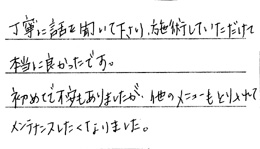 丁寧に話を聞いて下さり、施術していただけて
本当に良かったです。
初めてで不安もありましたが、他のメニューもとり入れて
メンテナンスしたくなりました。